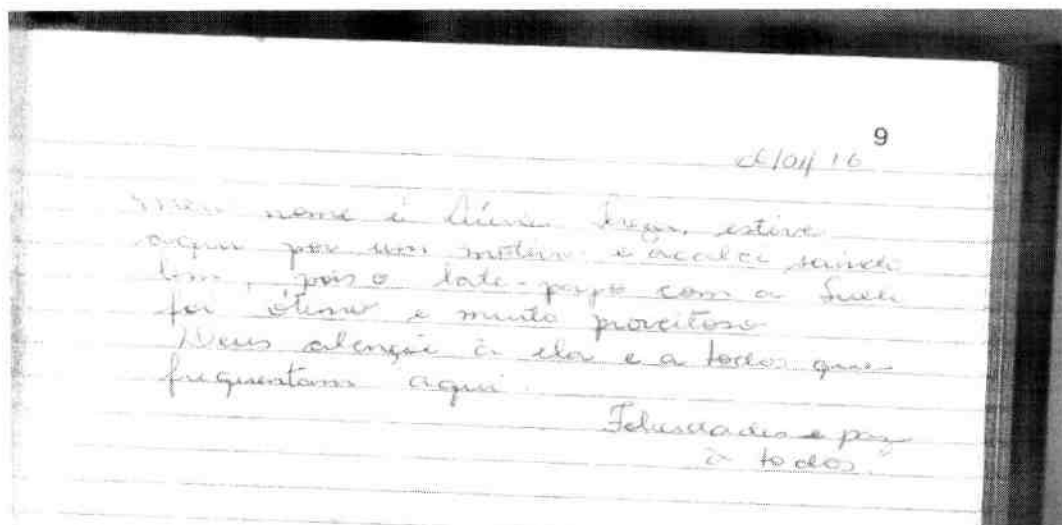 9
26/04/16
meu nome é estive
aqui por um motivo e acabei saindo
bem, pois o bate-papo com a Sueli
foi ótimo e muito proveitoso
Deus abençoe à ela e a todos que
frequentam aqui.
Felicidades e paz
à todos.